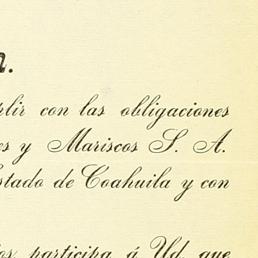 plir con las obligaciones
es y Mariscos S. A.
stado de Coahuila y con
os participa á Ud. que